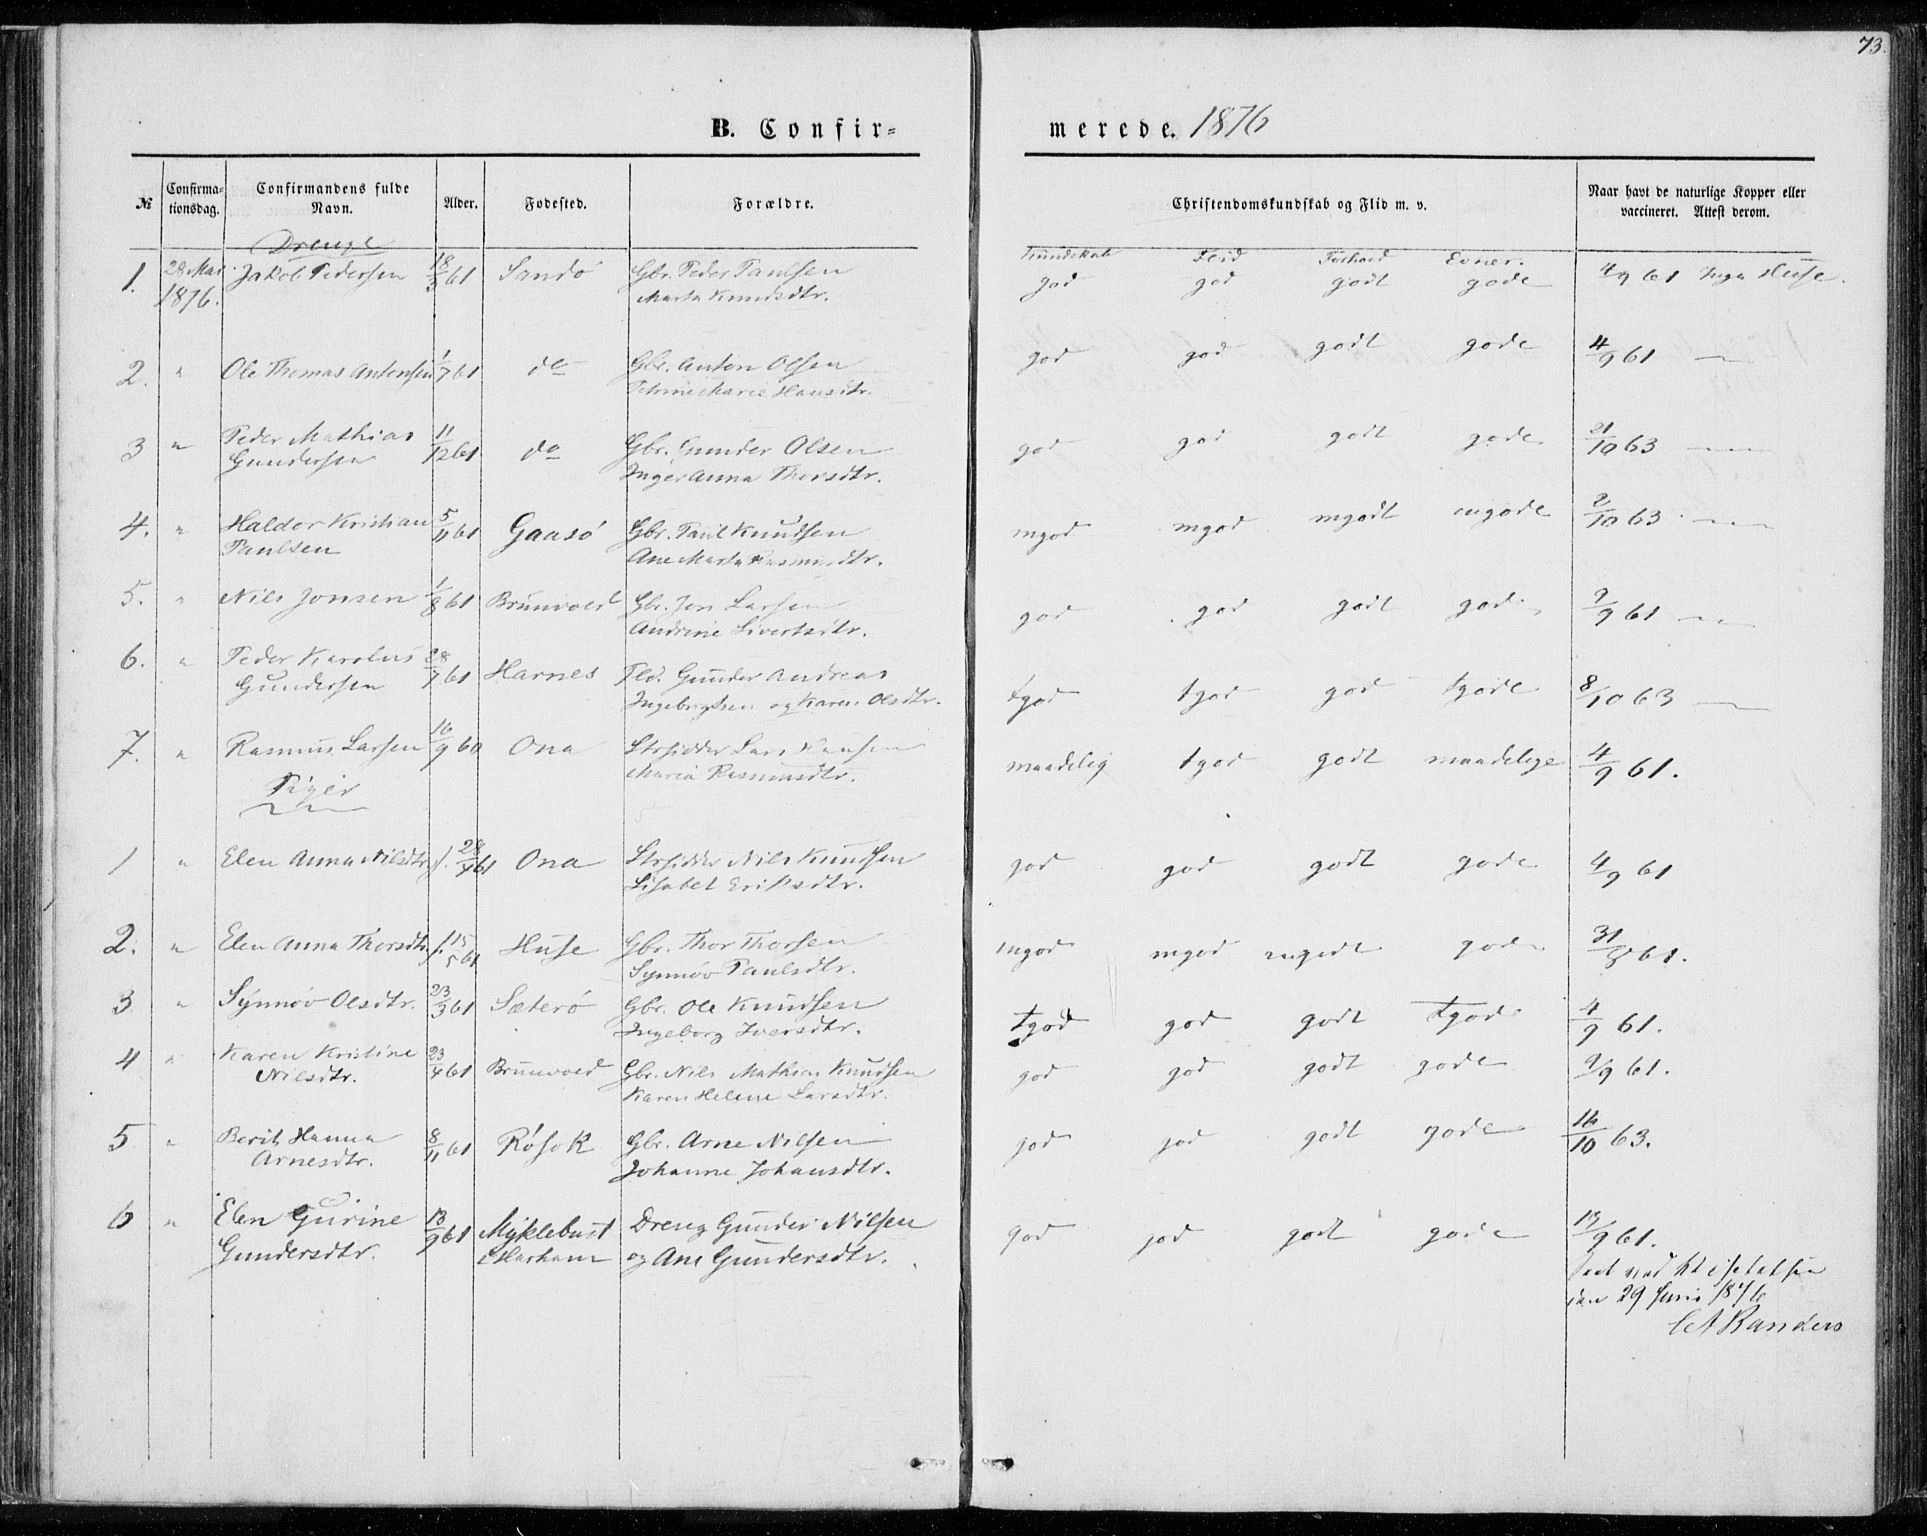 73.
B. Confir=
merede. 1876
№
Confirma=
tionsdag.
Confirmandens fulde
Navn.
Alder.
Fødested.
Forældre.
Christendomskundskab og Flid m. v.
Naar havt de naturlige Kopper eller
vaccineret. Attest derom.
Drenge
Kundskab Flid Forhold Evner.
1. 28 Mai Jakob Pedersen 18/3 61 Sandø Gbr. Peder Paulsen god god godt gode 4/9 61 Huse.
1876. Marta Knudsdtr.
2. " Ole Thomas Antonsen 1/7 61 do Gbr. Anton Olsen god god godt gode 4/9 61 —
Hansdtr.
3 " Peder Mathias 11/12 61 do Gbr. Gunder Olsen god god godt gode 21/10 63 —
Gundersen Inger Anna Thorsdtr.
4. " Haldor Kristian 5/11 61 Gaasø Gbr. Paul Knudsen mgod mgod mgodt mgode 2/10 63 —
Paulsen Ane Marta Rasmusdtr.
5. " Nils Jonsen 1/8 61 Brunvold Gbr. Jon Larsen god god godt gode 9/9 61 —
Andrine Sivertsdtr.
6. " Peder Karolus 28/7 61 Harnes Gunder Andreas tgod tgod god tgode 8/10 63 —
Gundersen Ingebrigtsen og Karen Olsdtr.
7. " Rasmus Larsen 16/9 60 Ona Strsidder Lars Hansen maadelig tgod godt maadelige 4/9 61.
Maria Rasmusdtr.
Piger
1 " Elen Anna Nilsdtr. f. 28/4 61 Ona Strsidder Nils Knudsen god god godt gode 4/9 61
Lisabet Eriksdtr.
2. " Elen Anna Thorsdtr. f. 15/5 61 Huse Gbr. Thor Thorsen mgod mgod mgodt gode 31/8 61.
Synnøv Paulsdtr.
3 " Synnøv Olsdtr. 23/3 61 Sæterø Gbr. Ole Knudsen tgod god godt tgode 4/9 61.
Ingeborg Iversdtr.
4 " Karen Kristine 23/4 61 Brunvold Gbr. Nils Mathias Knudsen god god godt gode 9/9 61.
Nilsdtr. Karen Helene Larsdtr.
5 " Berit Hanna 8/11 61 Røsok Gbr. Arne Nilsen god god godt gode 16/10 63.
Arnesdtr. Johanne Johansdtr.
6 " Elen Gurine 13/9 61 Myklebust Dreng Gunder Nilsen god god godt gode 19/9 61.
Gundersdtr. i Harham og Ane Gundersdtr.
seet ved
den 29 Juni 1876
Randers